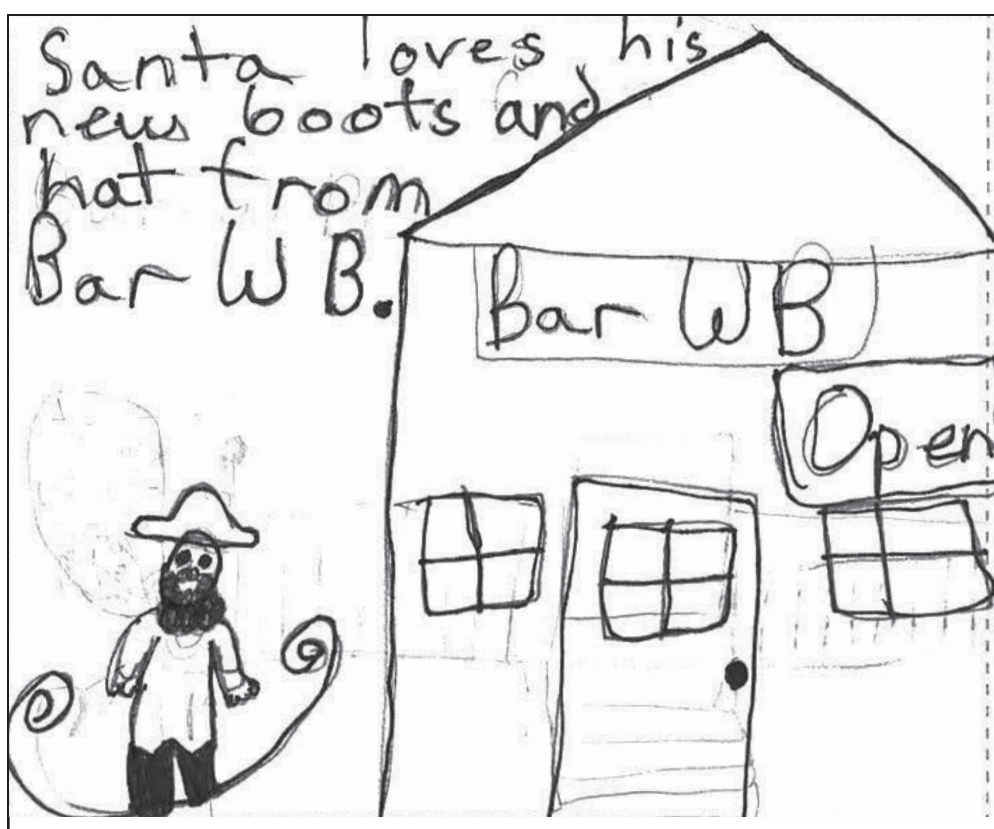 Santa loves his
new boots and
hat from
Bar W B.
Bar WB
Open